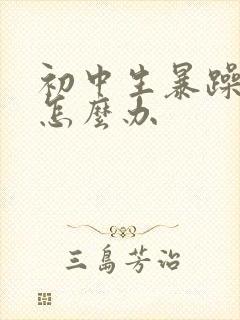 初中生暴躁
怎麼办
三島芳治